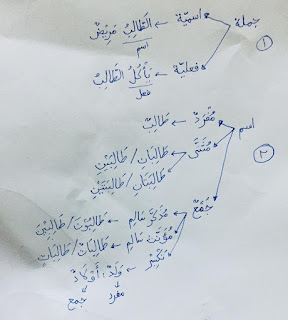 جملة
← اسميّة ← اَلطَّالِبُ مَرِيْضٌ
اسم
١
← فعليّة ← يَأْكُلُ الطَّالِبُ
فعل
اسم
← مُفْرَدٌ ← طَالِبٌ
٢
← مُثَنَّى ← طَالِبَانِ / طَالِبَيْنِ
طَالِبَتَانِ / طَالِبَتَيْنِ
← جَمْعٌ ← مُذَكَّر سَالِم ← طَالِبُوْنَ / طَالِبِيْنَ
مُؤَنَّث سَالِم ← طَالِبَاتٌ / طَالِبَاتٍ
تَكْسِيْر ← وَلَدٌ : أَوْلَادٌ
مفرد جمع